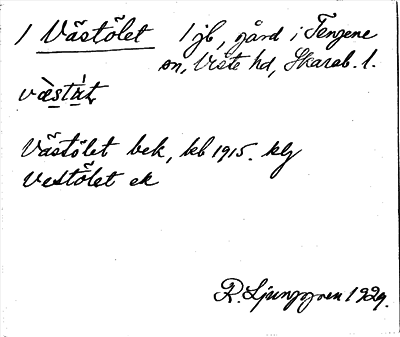 1 Västölet 1 jb, gård i Tengene
sn, Viste hd, Skarab. l.
Västölet bek, kb 1915. klj
Vestölet ek
R. Ljunggren 1929.